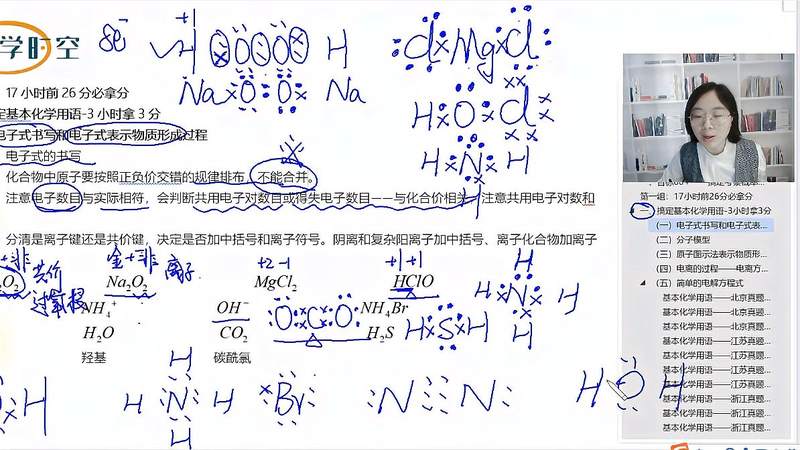 学时空
17小时前26分必拿分
定基本化学用语-3小时拿3分
电子式书写和电子式表示物质形成过程
电子式的书写
化合物中原子要按照正负价交错的规律排布,不能合并。
注意电子数目与实际相符,会判断共用电子对数目或得失电子数目——与化合价相关。注意共用电子对数和
分清是离子键还是共价键,决定是否加中括号和离子符号。阴离子和复杂阳离子加中括号、离子化合物加离子
Na₂O₂ MgCl₂ HClO
NH₄⁺ OH⁻ NH₄Br
H₂O CO₂ H₂S
羟基 碳酰氯
8e⁻ +1 H O O O H
Na O O Na
Cl Mg Cl
H O Cl
H N H
H
+非 共价
过氧根
金+非 离子
+2 -1
+1 +1
O C O
H S H
H
H N H
H
H
H N H
H
Br
N N
H O H
第一组:17小时前26分必拿分
一 搞定基本化学用语-3小时拿3分
(一)电子式书写和电子式表...
(二)分子模型
(三)原子图示法表示物质形...
(四)电离的过程——电离方...
(五)简单的电解方程式
基本化学用语——北京真题...
基本化学用语——北京真题...
基本化学用语——北京真题...
基本化学用语——江苏真题...
基本化学用语——江苏真题...
基本化学用语——江苏真题...
基本化学用语——江苏真题...
基本化学用语——浙江真题...
基本化学用语——浙江真题...
基本化学用语——浙江真题...